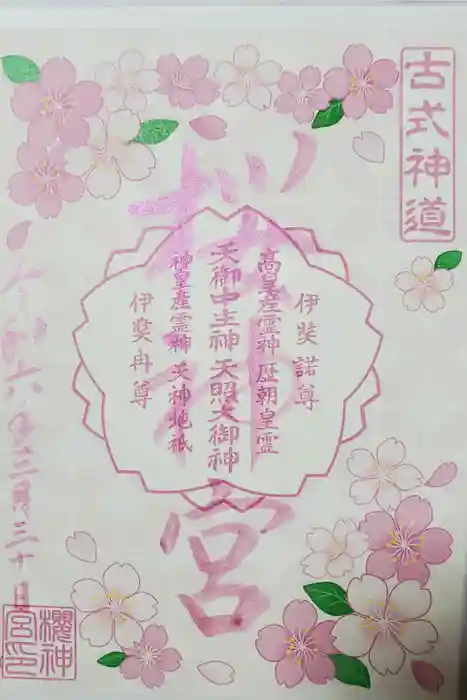 古式神道
桜神宮
伊弉諾尊
高皇産霊神 歴朝皇霊
天御中主神 天照大御神
神皇産霊神 天神地祇
伊弉冉尊
令和六年三月三十日
櫻神
宮印